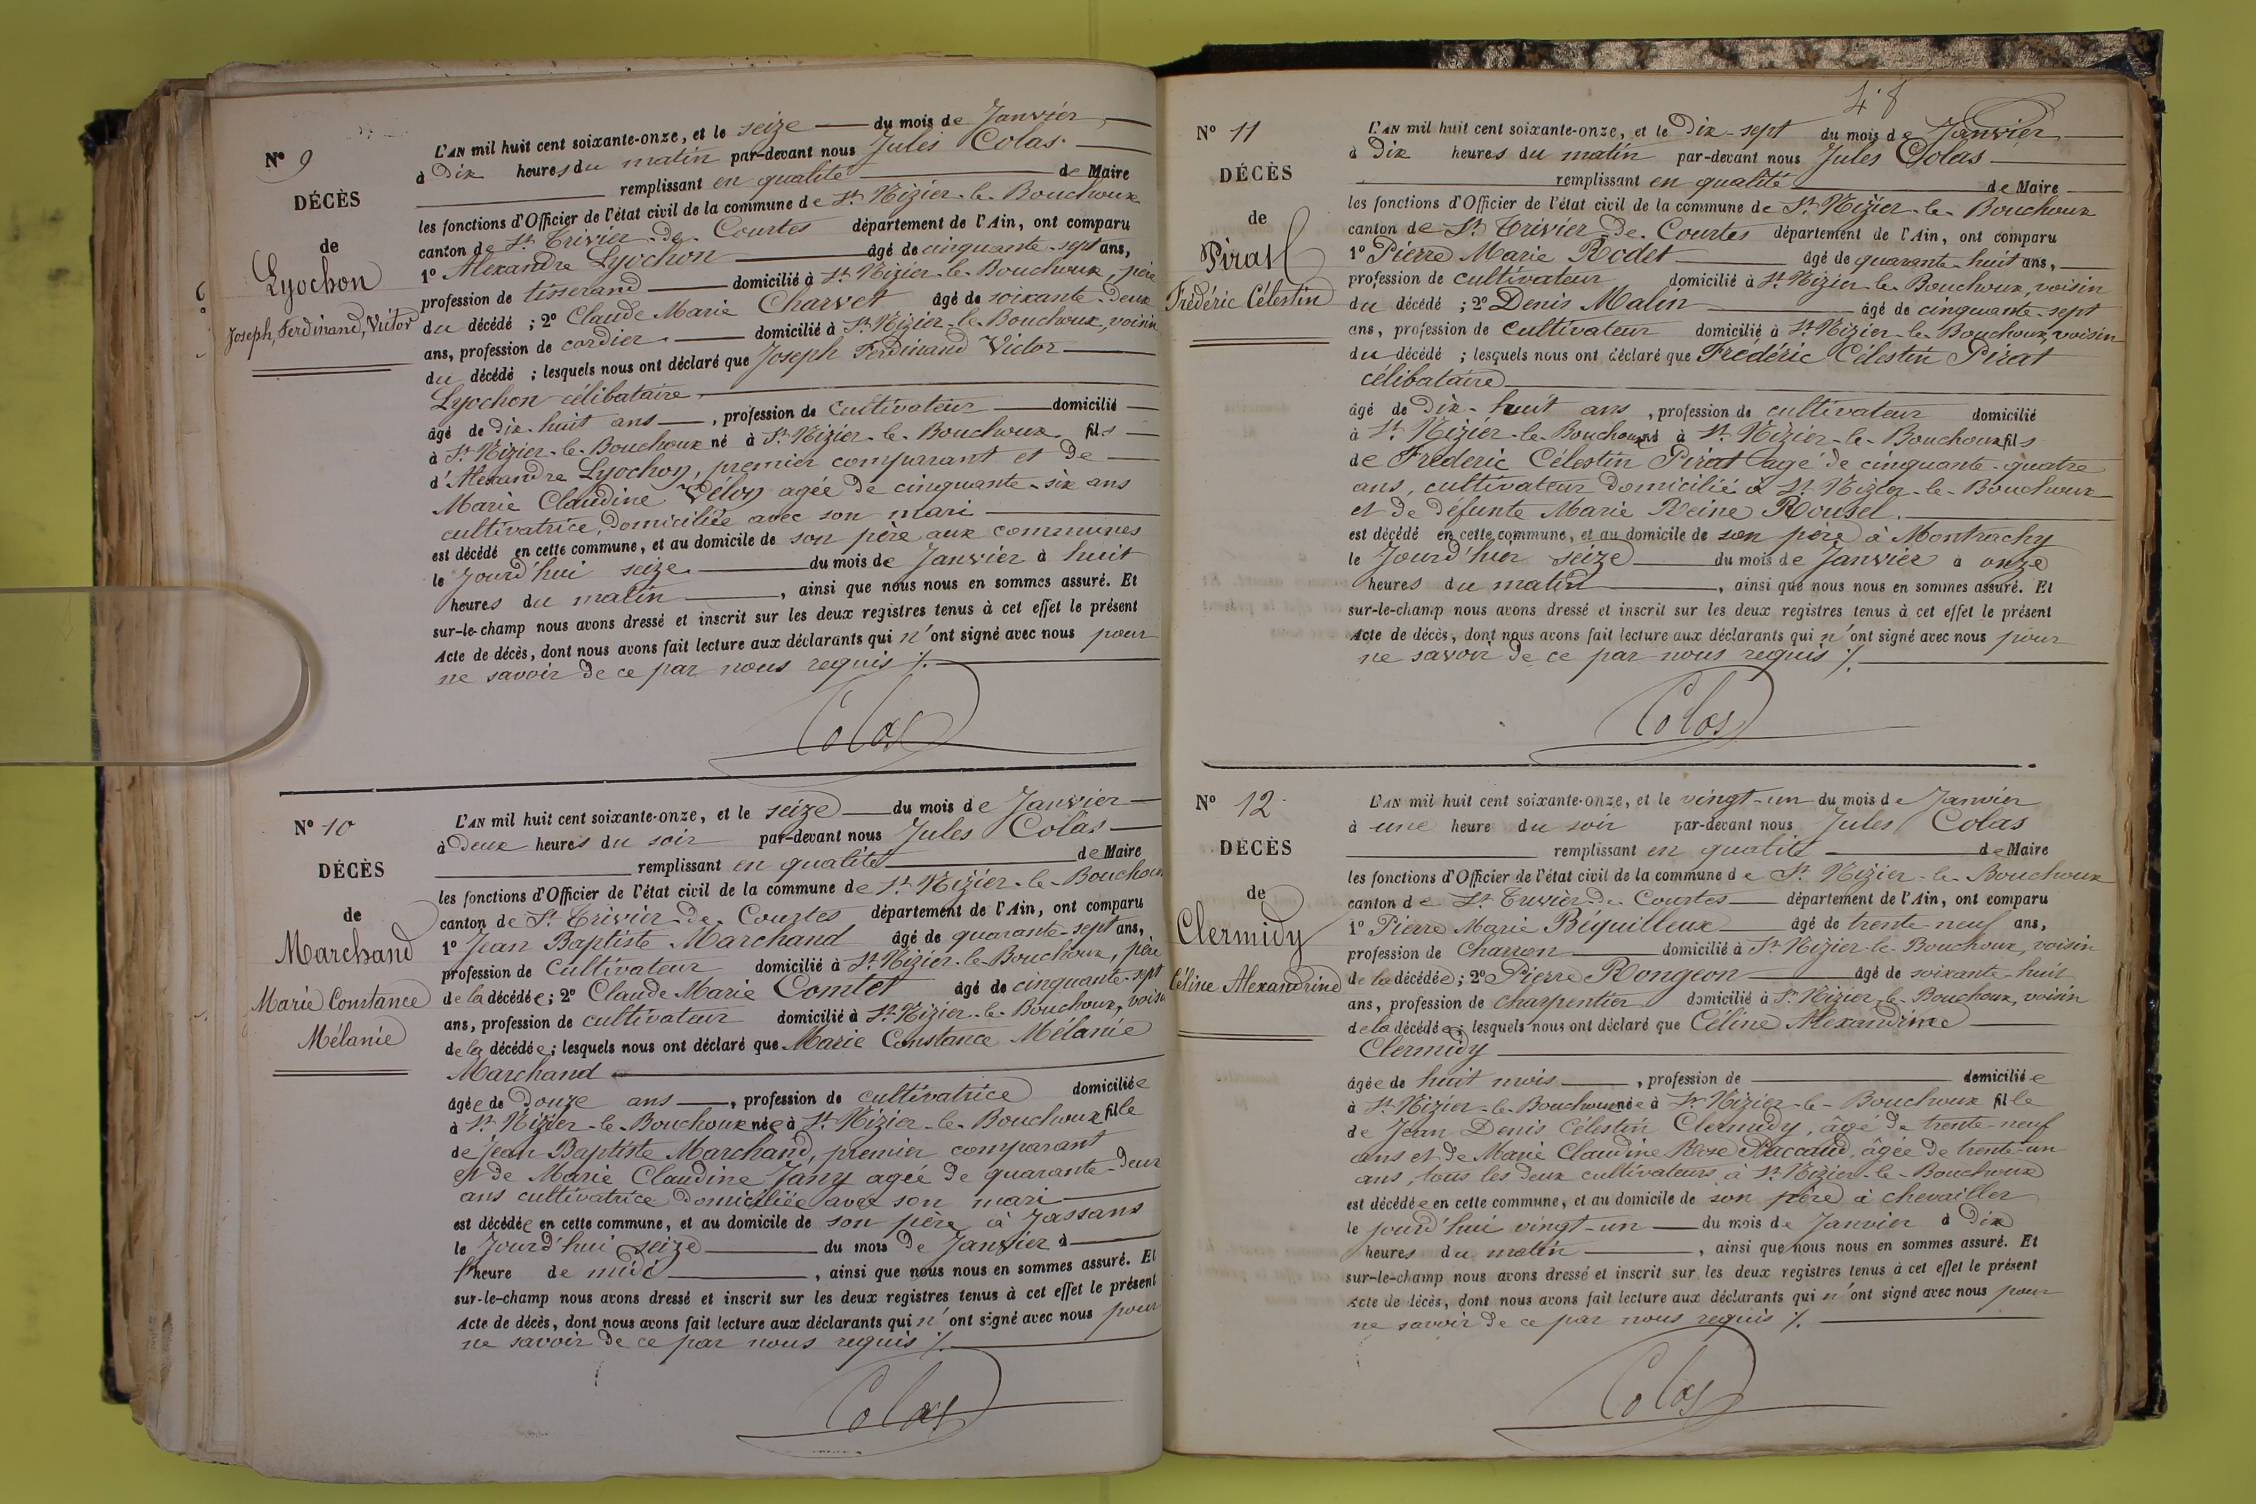 N° 9
DÉCÈS
de
Lyochon
Joseph, Ferdinand, Victor
L'AN mil huit cent soixante-onze, et le seize du mois de Janvier
à Dix heures du matin par-devant nous Jules Colas
remplissant en qualité de Maire
les fonctions d'Officier de l'état civil de la commune de St Nizier-le-Bouchoux
canton de St Trivier-de-Courtes département de l'Ain, ont comparu
1° Alexandre Lyochon âgé de cinquante-sept ans,
profession de tisserand domicilié à St Nizier-le-Bouchoux, père
du décédé ; 2° Claude Marie Charvet âgé de soixante-deux
ans, profession de cordier domicilié à St Nizier-le-Bouchoux, voisin
du décédé ; lesquels nous ont déclaré que Joseph Ferdinand Victor
Lyochon célibataire
âgé de Dix-huit ans, profession de cultivateur domicilié
à St Nizier-le-Bouchoux né à St Nizier-le-Bouchoux fils
d'Alexandre Lyochon, premier comparant et de
Marie Claudine Vélon agée de cinquante-six ans
cultivatrice, domiciliée avec son mari
est décédé en cette commune, et au domicile de son père aux communes
le Jourd'hui seize du mois de Janvier à huit
heures du matin, ainsi que nous nous en sommes assuré. Et
sur-le-champ nous avons dressé et inscrit sur les deux registres tenus à cet effet le présent
Acte de décès, dont nous avons fait lecture aux déclarants qui n'ont signé avec nous pour
ne savoir de ce par nous requis ./.
Colas
N° 10
DÉCÈS
de
Marchand
Marie Constance
Mélanie
L'AN mil huit cent soixante-onze, et le seize du mois de Janvier
à Deux heures du soir par-devant nous Jules Colas
remplissant en qualité de Maire
les fonctions d'Officier de l'état civil de la commune de St Nizier-le-Bouchoux
canton de St Trivier-de-Courtes département de l'Ain, ont comparu
1° Jean Baptiste Marchand âgé de quarante-sept ans,
profession de cultivateur domicilié à St Nizier-le-Bouchoux, père
de la décédée ; 2° Claude Marie Comtet âgé de cinquante-sept
ans, profession de cultivateur domicilié à St Nizier-le-Bouchoux, voisin
de la décédée ; lesquels nous ont déclaré que Marie Constance Mélanie
Marchand
âgée de Douze ans, profession de cultivatrice domiciliée
à St Nizier-le-Bouchoux née à St Nizier-le-Bouchoux fille
de Jean Baptiste Marchand, premier comparant
et de Marie Claudine Jany agée de quarante-deux
ans cultivatrice domiciliée avec son mari
est décédée en cette commune, et au domicile de son père à Jassans
le Jourd'hui seize du mois de Janvier à
l'heure de midi, ainsi que nous nous en sommes assuré. Et
sur-le-champ nous avons dressé et inscrit sur les deux registres tenus à cet effet le présent
Acte de décès, dont nous avons fait lecture aux déclarants qui n'ont signé avec nous pour
ne savoir de ce par nous requis ./.
Colas
N° 11
DÉCÈS
de
Pirat
Frédéric Célestin
L'AN mil huit cent soixante-onze, et le Dix-sept du mois de Janvier
à Dix heures du matin par-devant nous Jules Colas
remplissant en qualité de Maire
les fonctions d'Officier de l'état civil de la commune de St Nizier-le-Bouchoux
canton de St Trivier-de-Courtes département de l'Ain, ont comparu
1° Pierre Marie Rodet âgé de quarante-huit ans,
profession de cultivateur domicilié à St Nizier-le-Bouchoux, voisin
du décédé ; 2° Denis Malin âgé de cinquante-sept
ans, profession de cultivateur domicilié à St Nizier-le-Bouchoux, voisin
du décédé ; lesquels nous ont déclaré que Frédéric Célestin Pirat
célibataire
âgé de Dix-huit ans, profession de cultivateur domicilié
à St Nizier-le-Bouchoux né à St Nizier-le-Bouchoux fils
de Frédéric Célestin Pirat agé de cinquante-quatre
ans, cultivateur domicilié à St Nizier-le-Bouchoux
et de défunte Marie Reine Roussel.
est décédé en cette commune, et au domicile de son père à Montrachy
le Jourd'hier seize du mois de Janvier à onze
heures du matin, ainsi que nous nous en sommes assuré. Et
sur-le-champ nous avons dressé et inscrit sur les deux registres tenus à cet effet le présent
Acte de décès, dont nous avons fait lecture aux déclarants qui n'ont signé avec nous pour
ne savoir de ce par nous requis ./.
Colas
N° 12
DÉCÈS
de
Clermidy
Céline Alexandrine
L'AN mil huit cent soixante-onze, et le vingt-un du mois de Janvier
à une heure du soir par-devant nous Jules Colas
remplissant en qualité de Maire
les fonctions d'Officier de l'état civil de la commune de St Nizier-le-Bouchoux
canton de St Trivier-de-Courtes département de l'Ain, ont comparu
1° Pierre Marie Béquilleux âgé de trente-neuf ans,
profession de Charron domicilié à St Nizier-le-Bouchoux, voisin
de la décédée ; 2° Pierre Rongeon âgé de soixante-huit
ans, profession de charpentier domicilié à St Nizier-le-Bouchoux, voisin
de la décédée ; lesquels nous ont déclaré que Céline Alexandrine
Clermidy
âgée de huit mois, profession de domiciliée
à St Nizier-le-Bouchoux née à St Nizier-le-Bouchoux fille
de Jean Denis Célestin Clermidy, âgé de trente-neuf
ans et de Marie Claudine Rose Raccaud, âgée de trente-un
ans, tous les deux cultivateurs à St Nizier-le-Bouchoux
est décédée en cette commune, et au domicile de son père à chevailler
le jourd'hui vingt-un du mois de Janvier à Dix
heures du matin, ainsi que nous nous en sommes assuré. Et
sur-le-champ nous avons dressé et inscrit sur les deux registres tenus à cet effet le présent
Acte de décès, dont nous avons fait lecture aux déclarants qui n'ont signé avec nous pour
ne savoir de ce par nous requis ./.
Colas